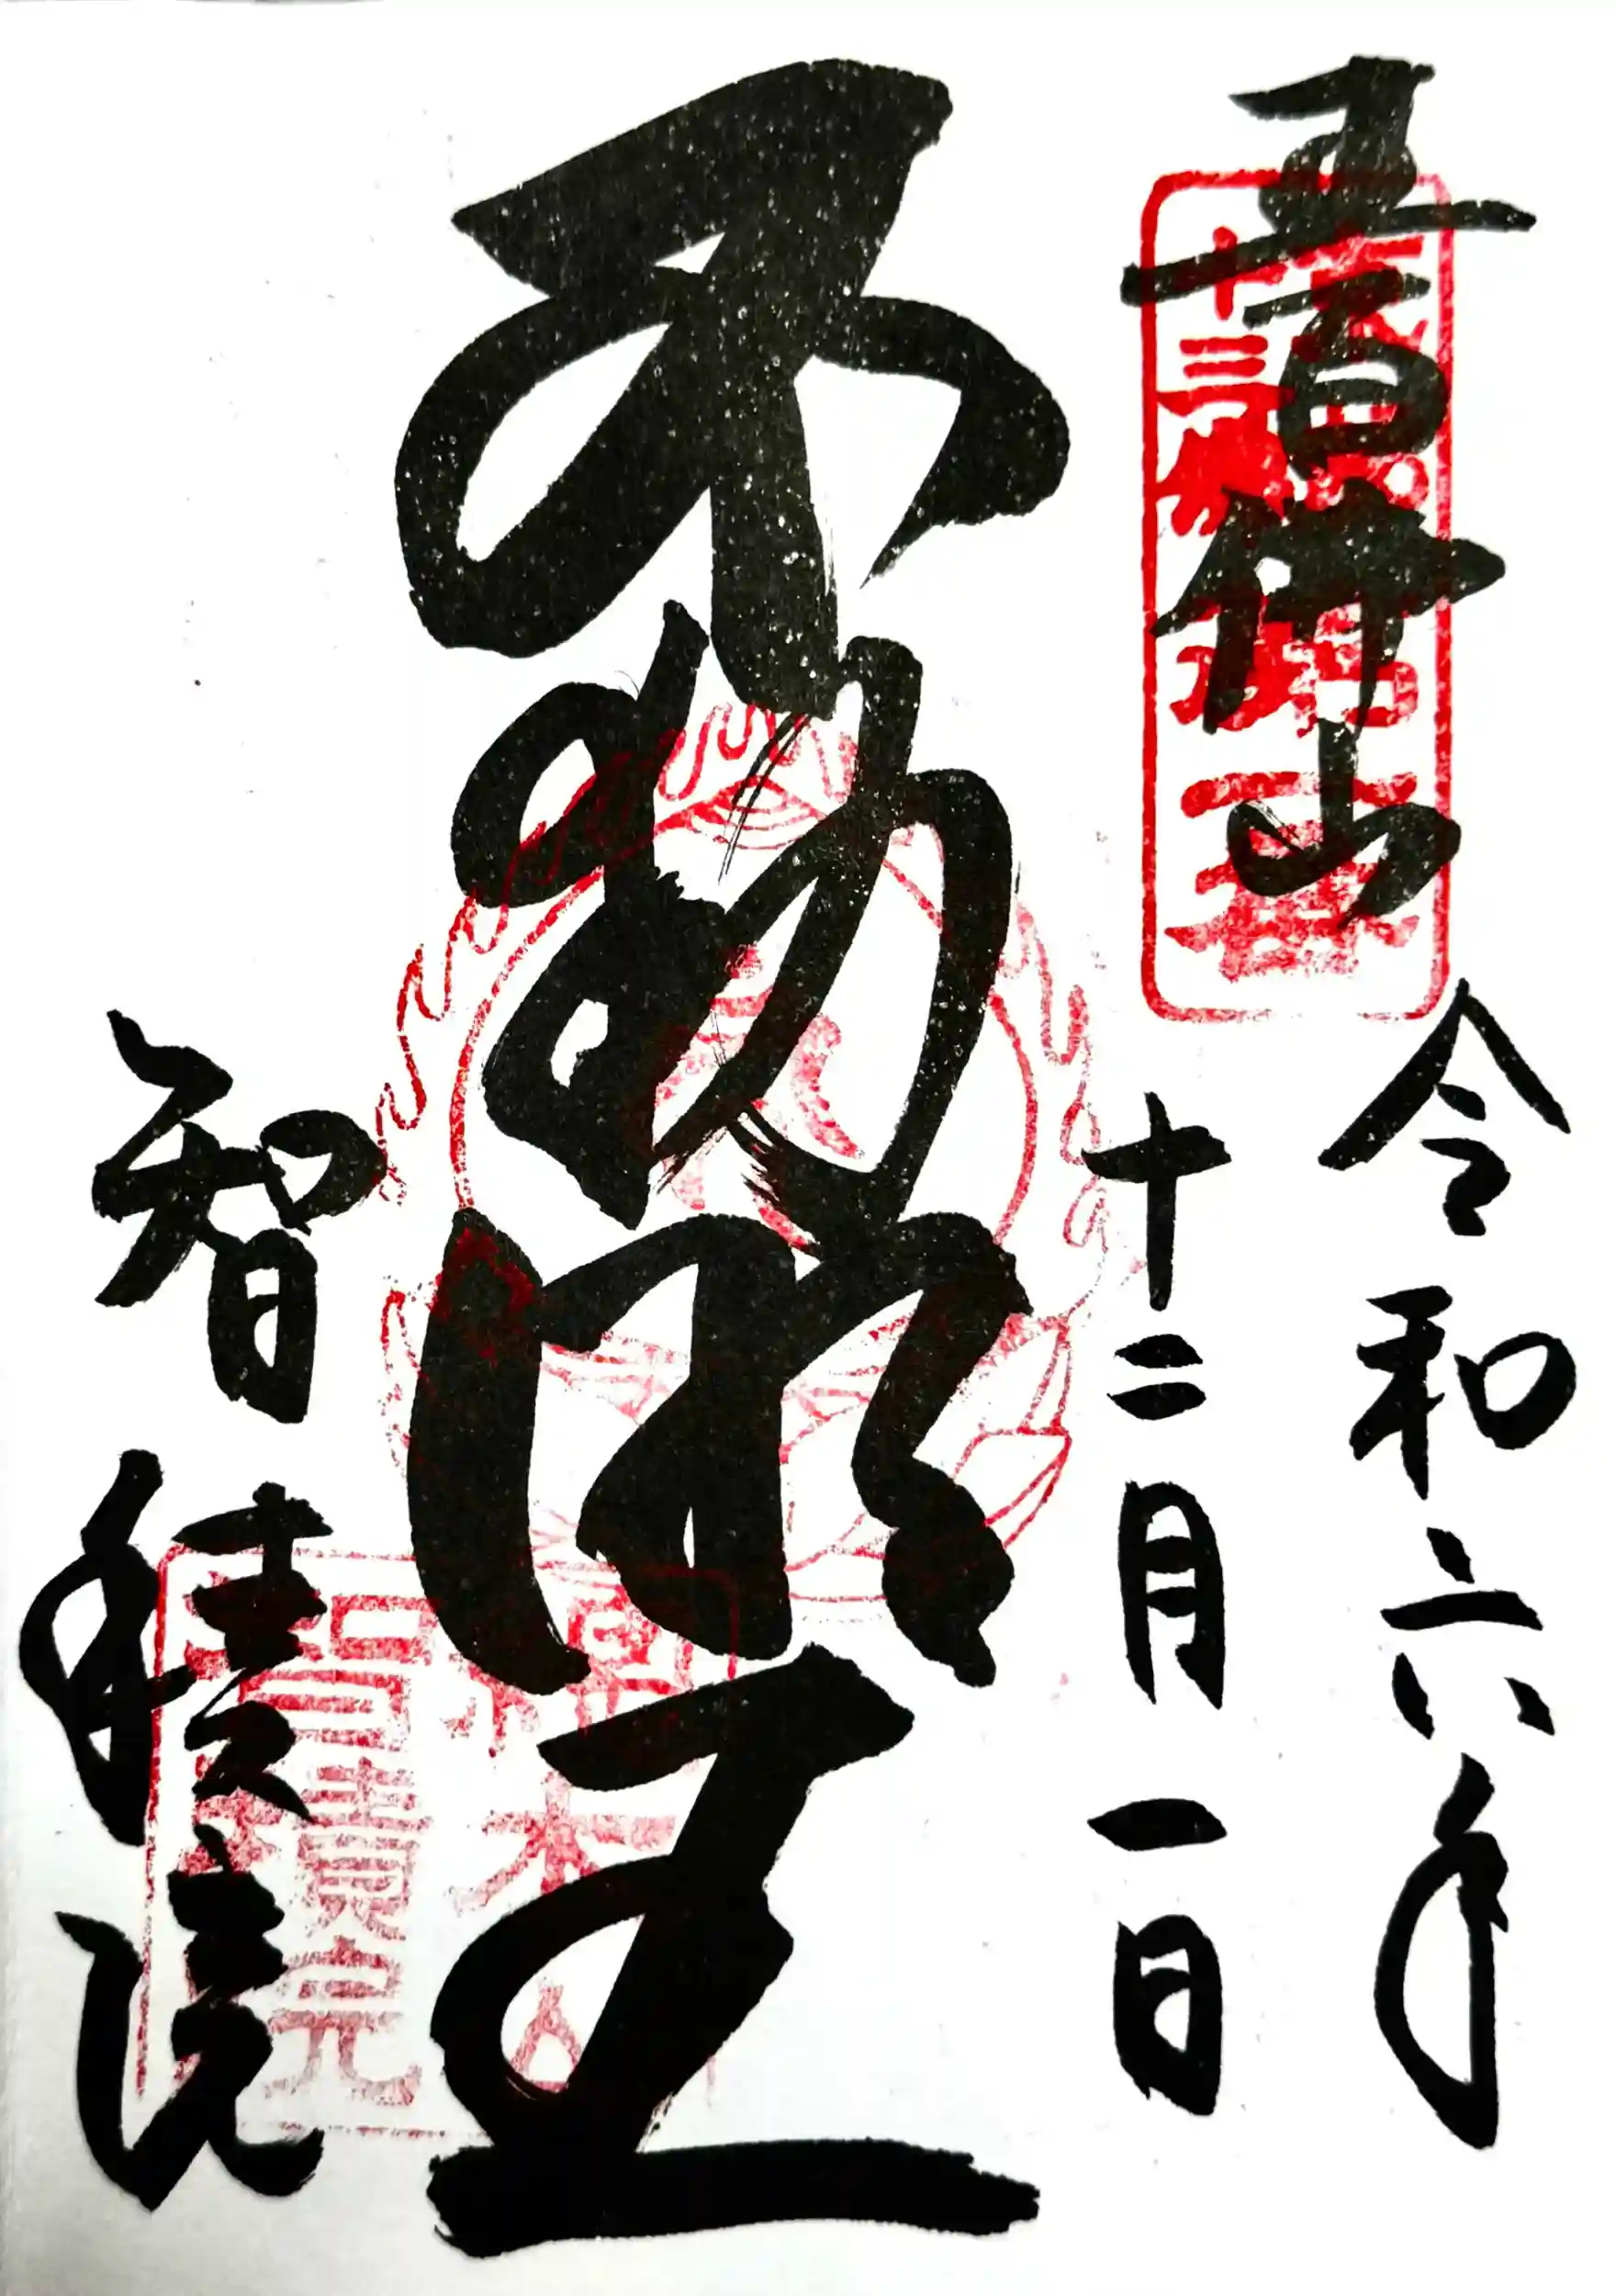 五百佛山
令和六年
十二月一日
不動明王
智積院